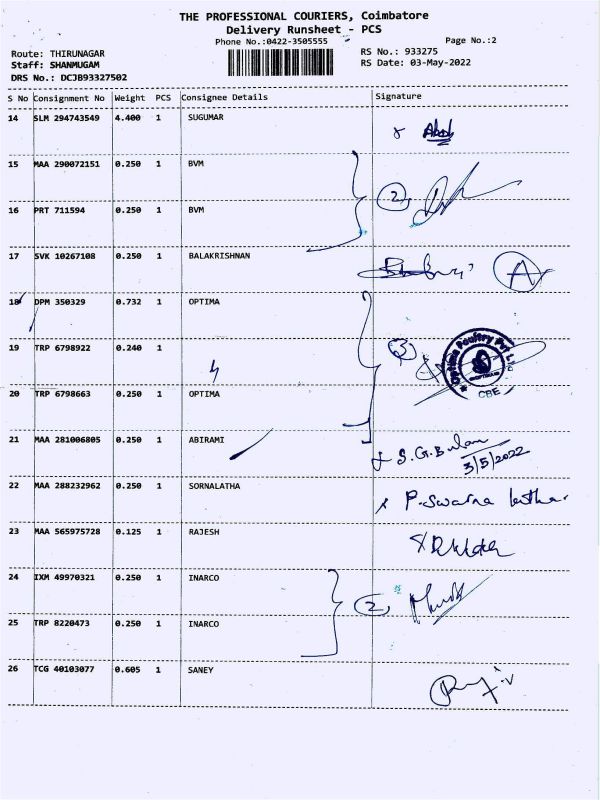 THE PROFESSIONAL COURIERS, Coimbatore
Delivery Runsheet - PCS
Phone No.:0422-3505555
Page No.:2
Route: THIRUNAGAR
RS No.: 933275
Staff: SHANMUGAM
RS Date: 03-May-2022
DRS No.: DCJB93327502
S No Consignment No Weight PCS Consignee Details Signature
14 SLM 294743549 4.400 1 SUGUMAR
15 MAA 290072151 0.250 1 BVM
2
16 PRT 711594 0.250 1 BVM
17 SVK 10267108 0.250 1 BALAKRISHNAN
A
18 DPM 350329 0.732 1 OPTIMA
19 TRP 6798922 0.240 1
3
Optima Poultry Pvt
CBE
20 TRP 6798663 0.250 1 OPTIMA
21 MAA 281006805 0.250 1 ABIRAMI
S.G.
3/5/2022
22 MAA 288232962 0.250 1 SORNALATHA
P. Swarna latha
23 MAA 565975728 0.125 1 RAJESH
24 IXM 49970321 0.250 1 INARCO
2
25 TRP 8220473 0.250 1 INARCO
26 TCG 40103077 0.605 1 SANEY